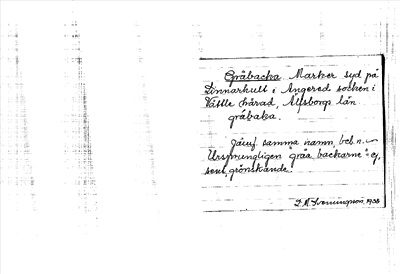 Gråbacka. Marker syd på
Linnarhult i Angered socken i
Vättle härad, Älfsborgs län
gråbaka.
Jämf samma namn, beb. n.
Ursprungligen gråa backarne = ej,
som, grönskande.
1938